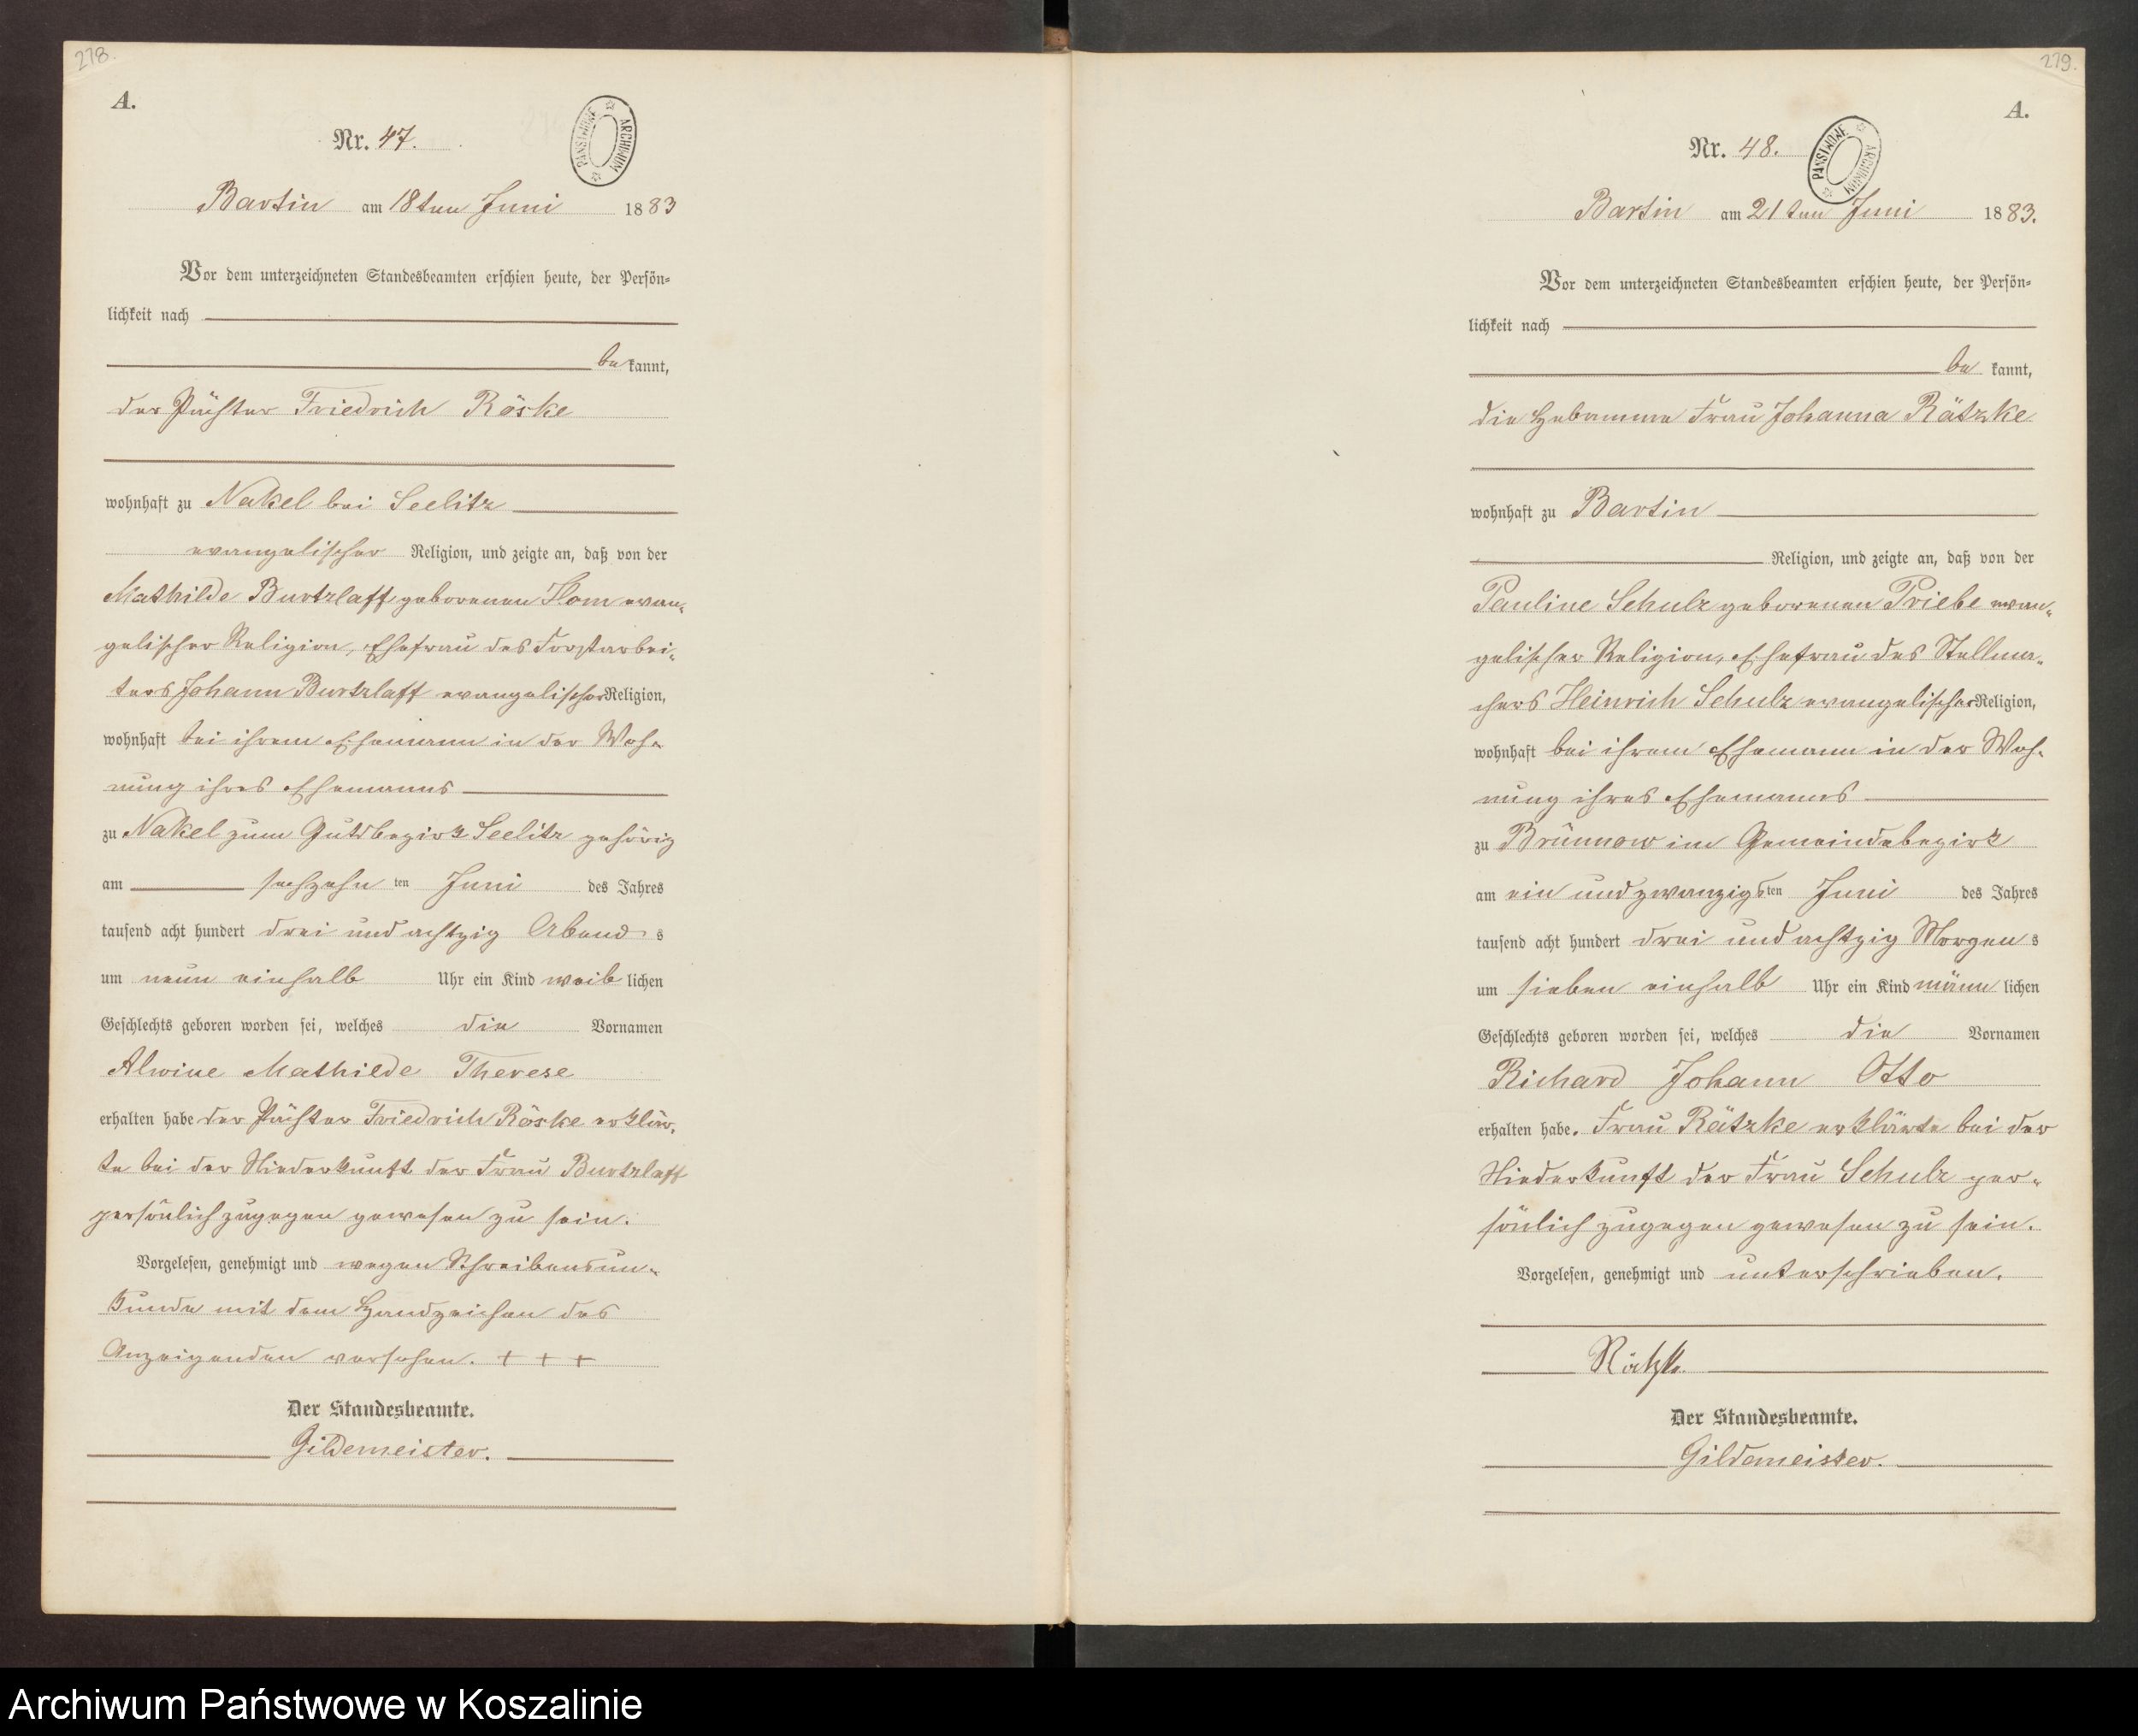 278.
A.
Nr. 47.
PAŃSTWOWE ARCHIWUM
Bartin am 18ten Juni 1883
Vor dem unterzeichneten Standesbeamten erschien heute, der Persön=
lichkeit nach
bekannt,
der Pächter Friedrich Röske
wohnhaft zu Nakel bei Seelitz
evangelischer Religion, und zeigte an, daß von der
Mathilde Burtzlaff geborenen Hom evan=
gelischer Religion, Ehefrau des Forstarbei=
ters Johann Burtzlaff evangelischer Religion,
wohnhaft bei ihrem Ehemann in der Woh=
nung ihres Ehemanns
zu Nakel zum Gutsbezirk Seelitz gehörig
am sechzehn ten Juni des Jahres
tausend acht hundert drei und achtzig Abends
um neun einhalb Uhr ein Kind weiblichen
Geschlechts geboren worden sei, welches die Vornamen
Alwine Mathilde Therese
erhalten habe der Pächter Friedrich Röske erklär=
te bei der Niederkunft der Frau Burtzlaff
persönlich zugegen gewesen zu sein.
Vorgelesen, genehmigt und wegen Schreibensun=
kunde mit dem Handzeichen des
Anzeigenden versehen. + + +
Der Standesbeamte.
Gildemeister.
279.
A.
Nr. 48.
PAŃSTWOWE ARCHIWUM
Bartin am 21ten Juni 1883.
Vor dem unterzeichneten Standesbeamten erschien heute, der Persön=
lichkeit nach
bekannt,
die Hebamme Frau Johanna Rätzke
wohnhaft zu Bartin
Religion, und zeigte an, daß von der
Pauline Schulz geborenen Priebe evan=
gelischer Religion, Ehefrau des Stellma=
chers Heinrich Schulz evangelischer Religion,
wohnhaft bei ihrem Ehemann in der Woh=
nung ihres Ehemanns
zu Brünnow im Gemeindebezirk
am ein und zwanzigsten Juni des Jahres
tausend acht hundert drei und achtzig Morgens
um sieben einhalb Uhr ein Kind männlichen
Geschlechts geboren worden sei, welches die Vornamen
Richard Johann Otto
erhalten habe. Frau Rätzke erklärte bei der
Niederkunft der Frau Schulz per=
sönlich zugegen gewesen zu sein.
Vorgelesen, genehmigt und unterschrieben.
Rätzke
Der Standesbeamte.
Gildemeister.
Archiwum Państwowe w Koszalinie